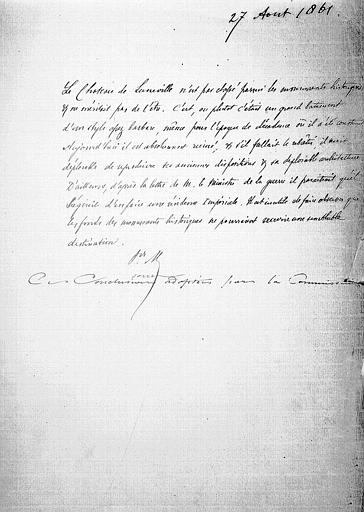 27 Aout 1861.
Le Chateau de Luneville n'est pas classé parmi les monuments historiques
& ne méritait pas de l'être. C'est, ou plutot c'était un grand batiment
d'un style assez barbare, même pour l'époque de décadence où il a été construit
Aujourd'hui il est absolument ruiné, & s'il fallait le rétablir, il serait
déplorable de reproduire ses anciennes dispositions & sa déplorable architecture
D'ailleurs, d'après la lettre de M. le Ministre de la guerre il paraitrait qu'il
s'agirait d'en faire une résidence Impériale. Il est inutile de faire observer que
les fonds des monuments historiques ne pourraient recevoir une semblable
destination.
Pr M
Ces Conclusions sont adoptées par la Commission